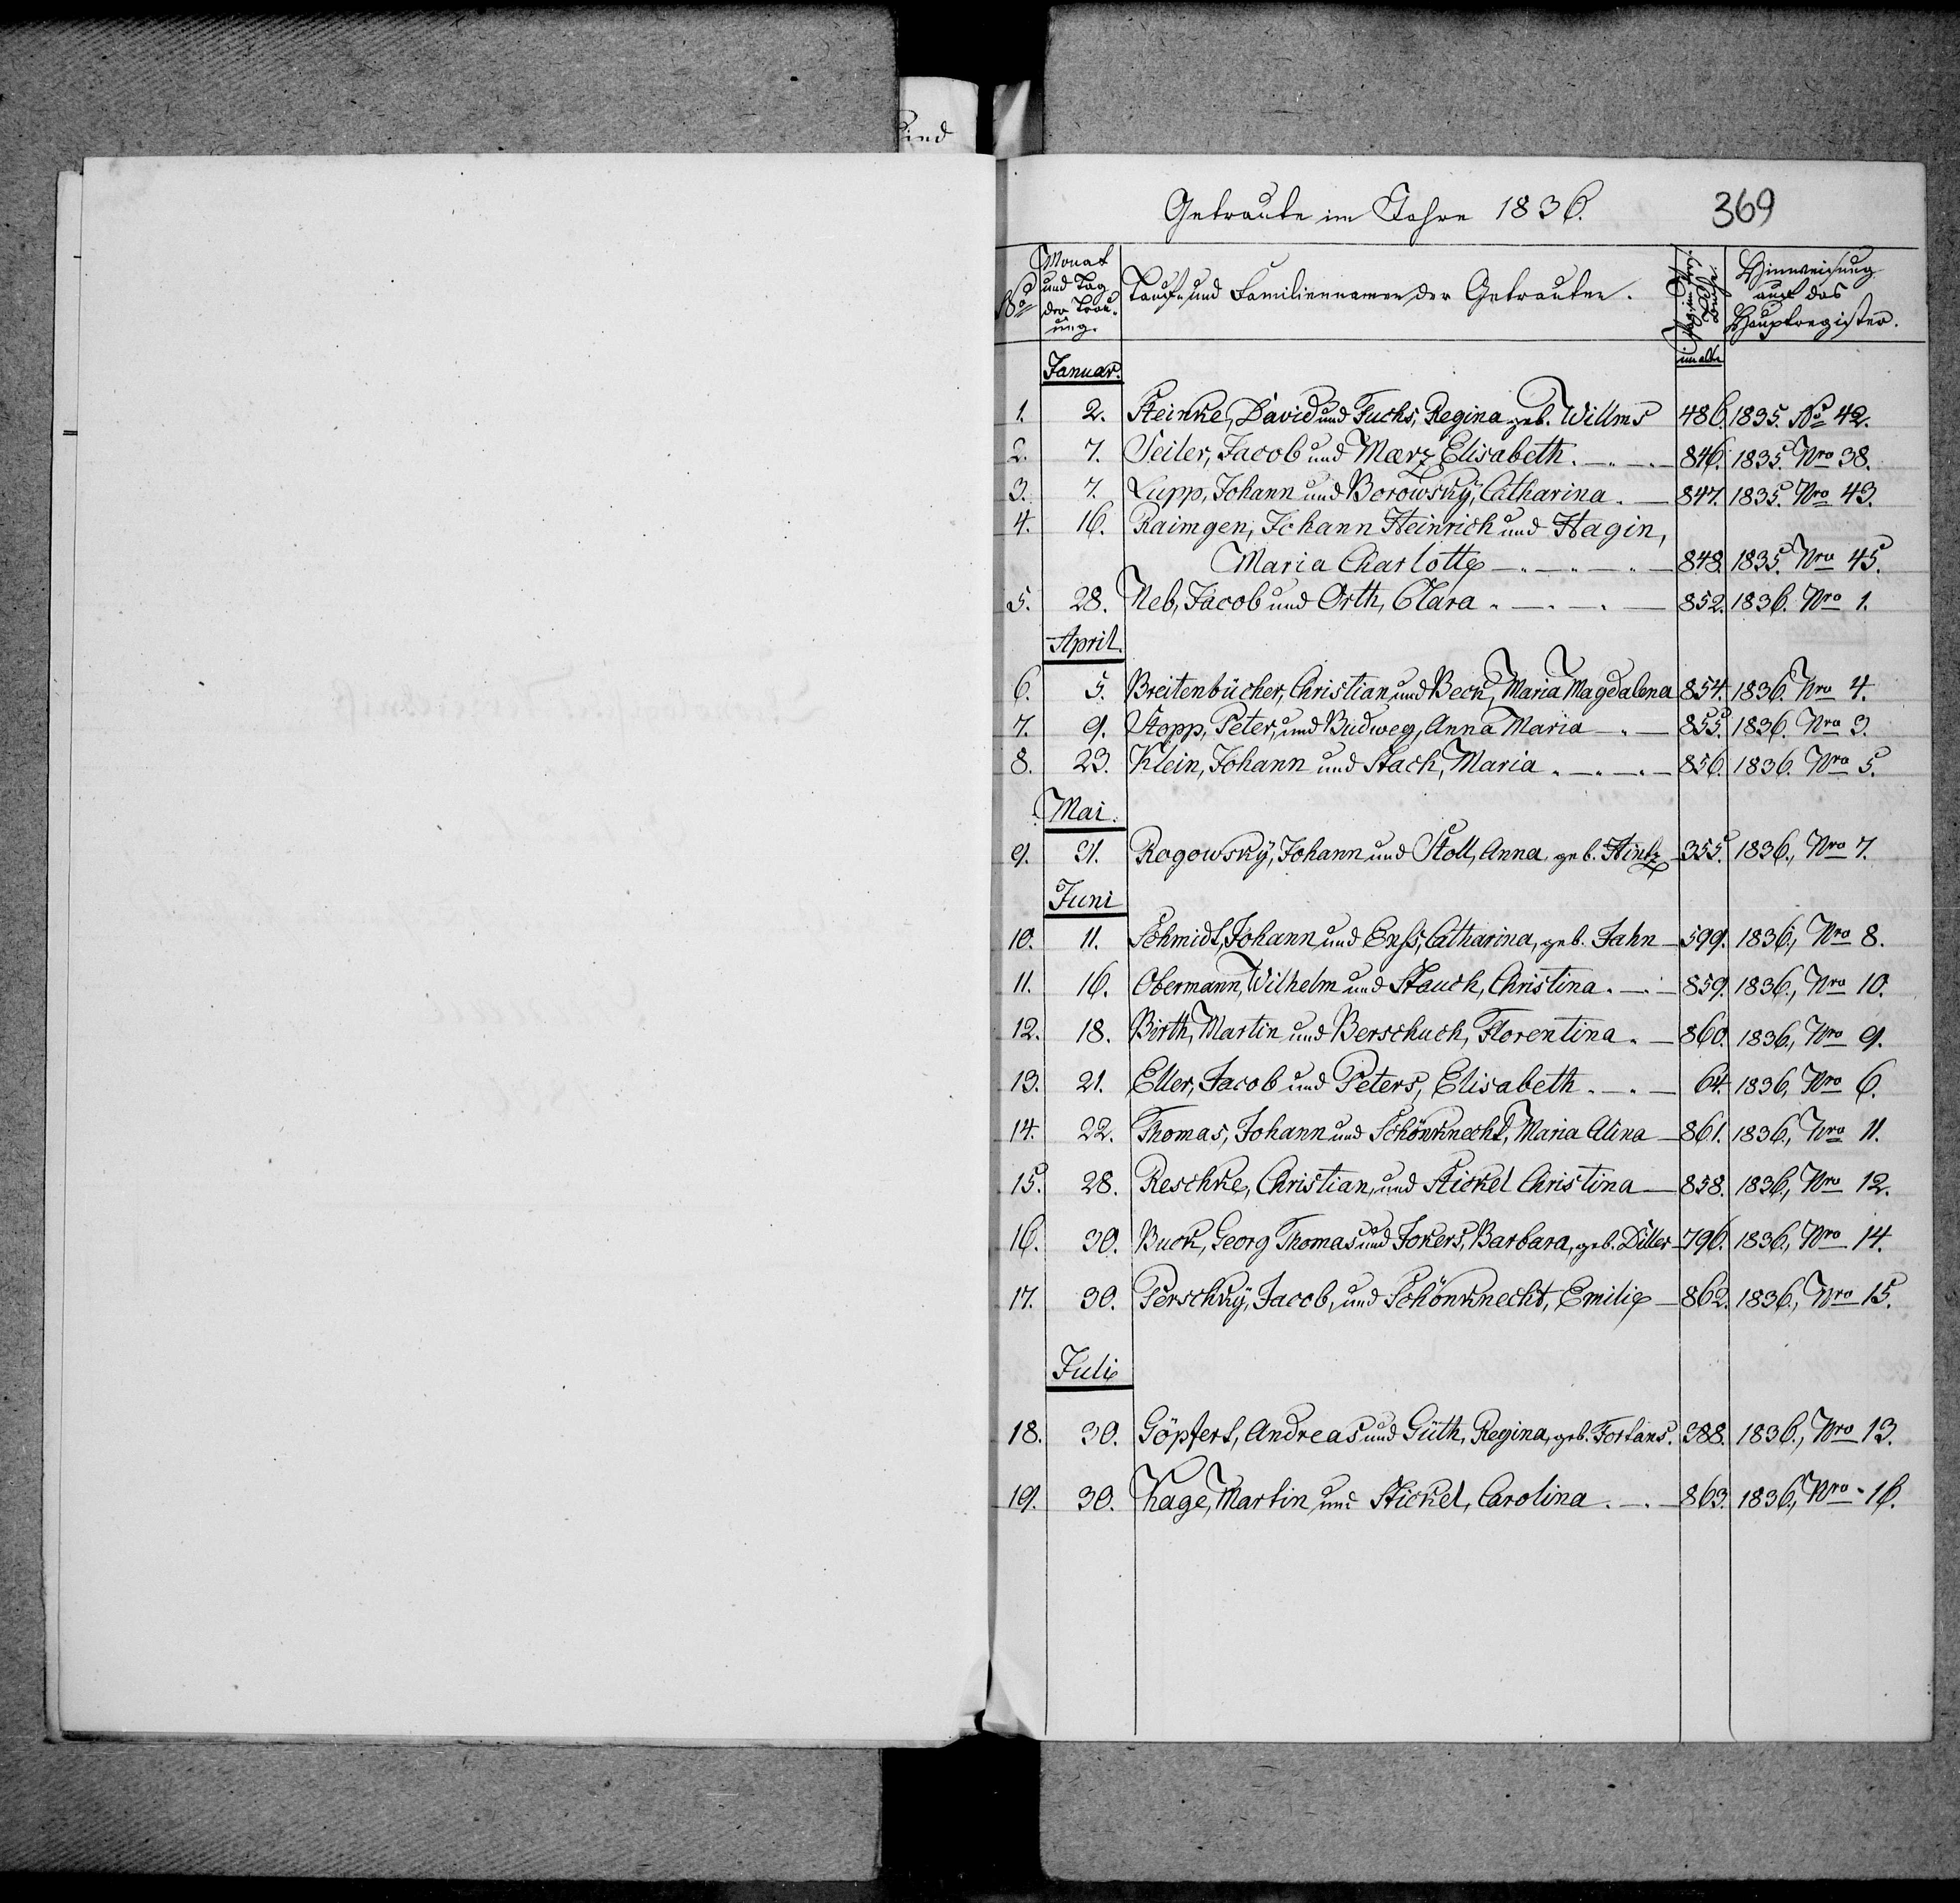 ind
Getraute im Jahre 1836.
369
No
Monat
und Tag
der Trau-
ung.
Tauf- und Familiennamen der Getrauten.
Hinweisung
auf das
Hauptregister.
im alten
Januar.
1. 2. Steinke, David und Fuchs, Regina geb. Willms 486. 1835. No 42.
2. 7. Seiler, Jacob und Mærz Elisabeth. 846. 1835. Nro 38.
3. 7. Lupp, Johann und Borowskÿ, Catharina. 847. 1835. Nro 43.
4. 16. Raimgen, Johann Heinrich und Hagin,
Maria Charlotte 848. 1835. Nro 45.
5. 28. Neb, Jacob und Orth, Clara 852. 1836. Nro 1.
April.
6. 5. Breitenbücher, Christian und Beck, Maria Magdalena 854. 1836. Nro 4.
7. 9. Stopp, Peter, und Budweg, Anna Maria 855. 1836. Nro 3.
8. 23. Klein, Johann und Stach, Maria 856. 1836. Nro 5.
Mai.
9. 31. Rogowskÿ, Johann und Stoll, Anna, geb. Hintz 355. 1836., Nro 7.
Juni
10. 11. Schmidt, Johann und Enß, Catharina, geb. Jahn 599. 1836., Nro 8.
11. 16. Obermann, Wilhelm und Stauch, Christina. 859. 1836., Nro 10.
12. 18. Birth, Martin und Berschuch, Florentina. 860. 1836., Nro 9.
13. 21. Eller, Jacob und Peters, Elisabeth. 64. 1836, Nro 6.
14. 22. Thomas, Johann und Schönknecht, Maria Alina 861. 1836., Nro 11.
15. 28. Reschke, Christian, und Stickel Christina 858. 1836., Nro 12.
16. 30. Buck, Georg Thomas und Jokers, Barbara, geb. Diller 796. 1836., Nro 14.
17. 30. Perschkÿ, Jacob, und Schönknecht, Emilie 862. 1836., Nro 15.
Juli
18. 30. Göpfert, Andreas und Güth, Regina, geb. Fortans. 388. 1836., Nro 13.
19. 30. Khage, Martin und Stickel, Carolina. 863. 1836., Nro 16.